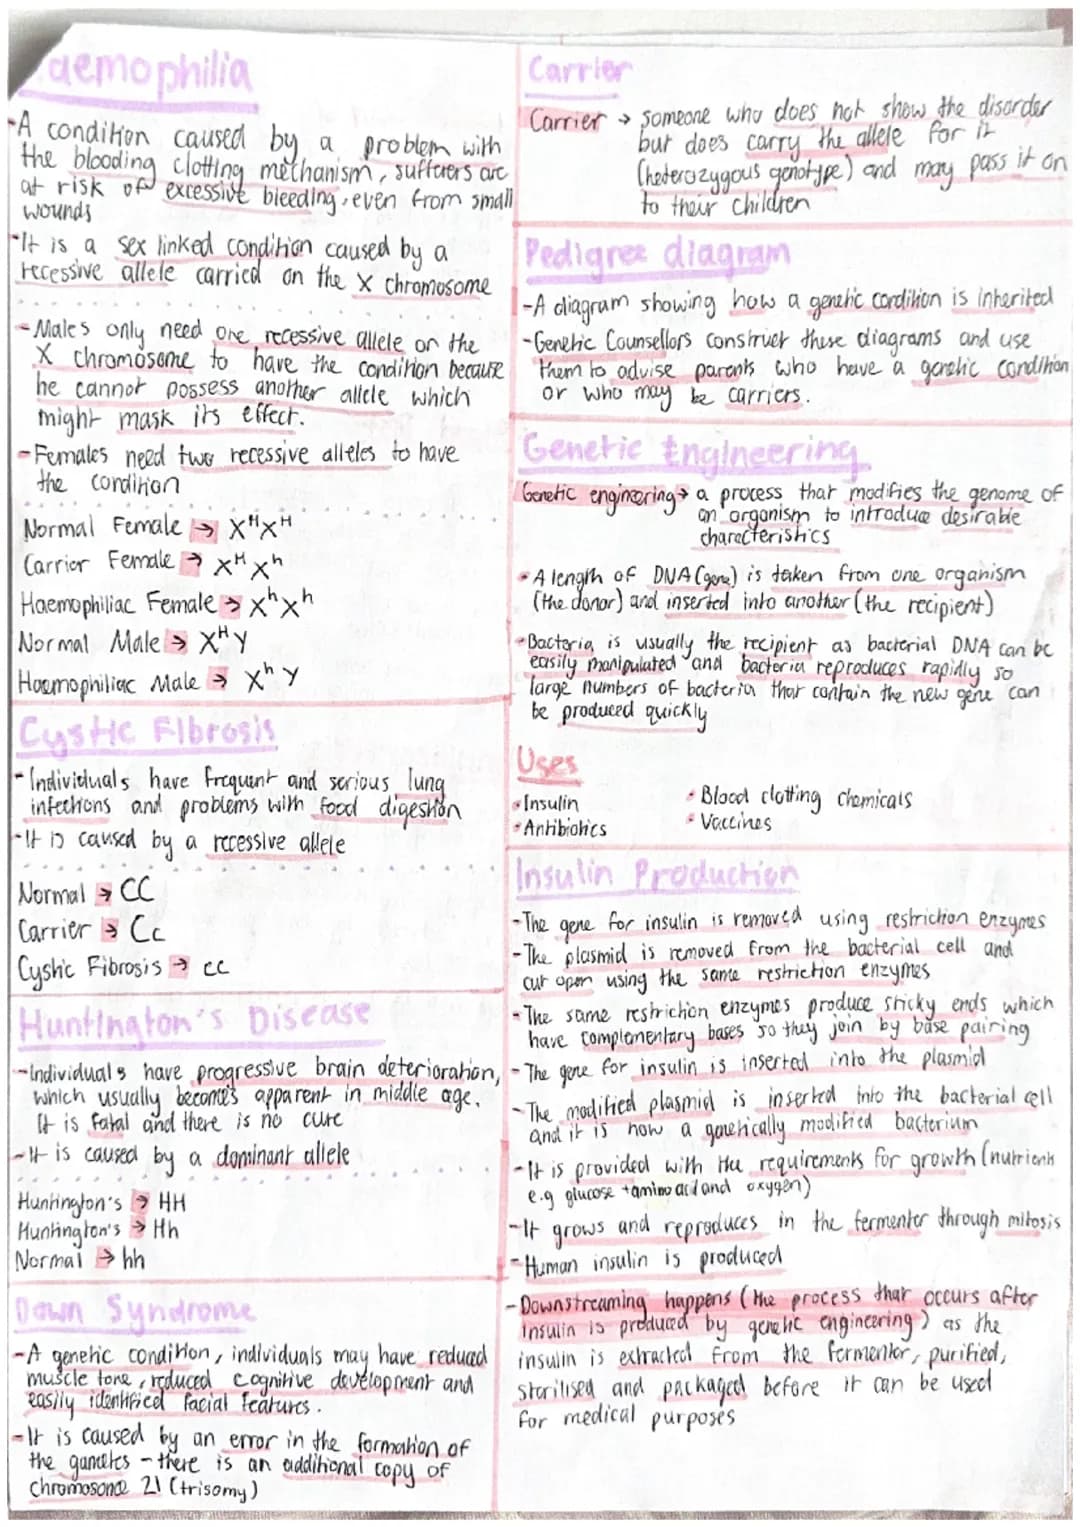 aemophilia
-A condition caused by a problem with
the blooding clotting mechanism, sufferers are
at risk of excessive bleeding, even from small
wounds
-It is a sex linked condition caused by a
recessive allele carried on the X chromosome
-Males only need one recessive allele on the
X chromosome to have the condition because
he cannot possess another allele which
might mask its effect.
-Females need two recessive alleles to have
the condition
Normal Female → XᴴXᴴ
Carrier Female → XᴴXʰ
Haemophiliac Female → XʰXʰ
Normal Male → XᴴY
Haemophiliac Male → XʰY
Cystic Fibrosis
-Individuals have frequent and serious lung
infections and problems with food digestion
-It is caused by a recessive allele
Normal → CC
Carrier → Cc
Cystic Fibrosis → cc
Huntington's Disease
-Individuals have progressive brain deterioration,
which usually becomes apparent in middle age.
It is fatal and there is no cure
-It is caused by a dominant allele
Huntington's → HH
Huntington's → Hh
Normal → hh
Down Syndrome
-A genetic condition, individuals may have reduced
muscle tone, reduced cognitive development and
easily identified facial features.
-It is caused by an error in the formation of
the gametes - there is an additional copy of
chromosome 21 (trisomy)
Carrier
Carrier → someone who does not show the disorder
but does carry the allele for it
(heterozygous genotype) and may pass it on
to their children
Pedigree diagram
-A diagram showing how a genetic condition is inherited
-Genetic Counsellors construct these diagrams and use
them to advise parents who have a genetic condition
or who may be carriers.
Genetic Engineering
Genetic engineering → a process that modifies the genome of
an organism to introduce desirable
characteristics
•A length of DNA (gene) is taken from one organism
(the donor) and inserted into another (the recipient)
•Bacteria is usually the recipient as bacterial DNA can be
easily manipulated and bacteria reproduces rapidly so
large numbers of bacteria that contain the new gene can
be produced quickly
Uses
•Insulin
•Antibiotics
•Blood clotting chemicals
•Vaccines
Insulin Production
-The gene for insulin is removed using restriction enzymes
-The plasmid is removed from the bacterial cell and
cut open using the same restriction enzymes
-The same restriction enzymes produce sticky ends which
have complementary bases so they join by base pairing
-The gene for insulin is inserted into the plasmid
-The modified plasmid is inserted into the bacterial cell
and it is now a genetically modified bacterium
-It is provided with the requirements for growth (nutrients
e.g glucose + amino acid and oxygen)
-It grows and reproduces in the fermenter through mitosis
-Human insulin is produced
-Downstreaming happens (the process that occurs after
insulin is produced by genetic engineering) as the
insulin is extracted from the fermenter, purified,
sterilised and packaged before it can be used
for medical purposes